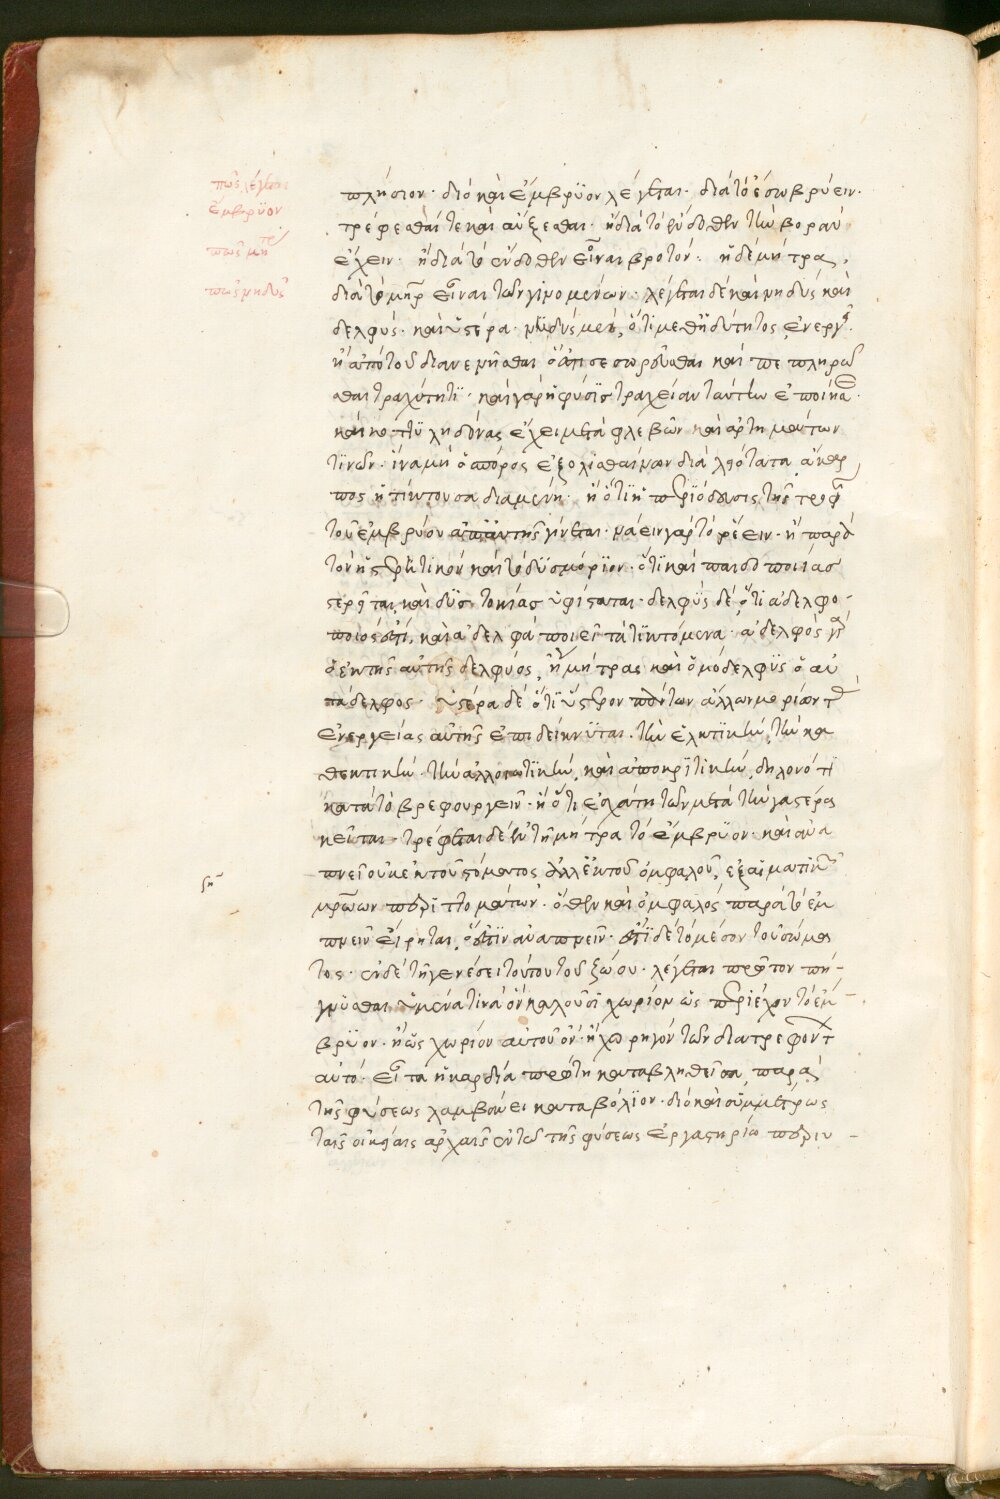 πῶς λέγεται
ἔμβρϋον
πῶς μήτρ
πῶς νηδύς
πλήσιον· διὸ καὶ ἔμβρϋον λέγεται· διὰ τὸ ἔσω βρύειν·
τρέφεσθαί τε καὶ αὔξεσθαι· ἢ διὰ τὸ ἔνδοθεν τὴν βορὰν
ἔχειν· ἢ διὰ τὸ ἔνδοθεν εἶναι βροτόν· ἡ δὲ μήτρα,
διὰ τὸ μηρ εἶναι τῶν γινομένων· λέγεται δὲ καὶ νηδὺς καὶ
δελφύς· καὶ ὑστέρα· νηδὺς μὲν, ὅτι μεθ' ἡδύτητος ἐνεργ
ἢ ἀπὸ τοῦ διανεμῆσθαι σεσωρεῦσθαι καὶ πεπληρῶ
σθαι τραχύτητϊ· καὶ γὰρ ἡ φύσϊς τραχεῖαν ταύτην ἐποίησεν·
καὶ κοτυληδόνας ἔχει μετὰ φλεβῶν καὶ ἀρτημάτων
τϊνῶν· ἵνα μὴ ὁ σπόρος ἐξολισθαίνων διὰ λειότατα ἄκαρ
πος ἡ τίκτουσα διαμένῃ· ἢ ὅτϊ ἡ περϊόδευσις τῆς τροφῆς
τοῦ ἐμβρύου ἀπ' αὐτῆς γίνεται· νάειν γὰρ τὸ ῥέειν· ἢ παρὰ
τὸν στερητικὸν καὶ τὸ δϋσμόρϊον· ὅτι καὶ παιδοποιίας
στερεῖται, καὶ δυστοκίας ὑφίσταται· δελφϋς δὲ, ὅτι ἀδελφο-
ποιός ἐστι, καὶ ἀδελφὰ ποιεῖ τὰ τϊκτόμενα· ἀδελφὸς γὰρ
ὁ ἐκ τῆς αὐτῆς δελφύος, ἢ μήτρας καὶ ὁμόδελφϋς ὁ αὐ
τάδελφος· ὑστέρα δὲ ὅτϊ ὕστερον πάντων ἄλλων μορίων τ
ἐνεργείας αὐτῆς ἐπιδείκνϋται· τὴν ἑλκτϊκὴν, τὴν κα
θεκτικὴν· τὴν ἀλλοιωτϊκὴν, καὶ ἀποκρϊτικὴν, δηλονότϊ
κατὰ τὸ βρεφουργεῖν· ἢ ὅτι ἐσχάτη τῶν μετὰ τὴν γαστέρος
κεῖται· τρέφεται δὲ ἐν τῇ μήτρα τὸ ἔμβρϋον· καὶ ἀνα
πνεῖ οὐκ ἐκ τοῦ στόματος ἀλλ' ἐκ τοῦ ὀμφαλοῦ, ἐξ αἱματικῶν
περιττωμάτων· ὅθεν καὶ ὀμφαλὸς παρὰ τὸ ἐμ
πνεῖν εἴρηται, ἀναπνεῖν· ἐστϊ δὲ τὸ μέσον τοῦ σώμα
τος· ἐν δὲ τῇ γενέσει τούτου τοῦ ζώου· λέγεται πρῶτον πή-
γνυσθαι ὑμένα τινὰ ὃν καλοῦσϊ χωρίον ὡς περϊέχον τὸ ἔμ-
βρϋον· ἢ ὡς χωρίον αὐτοῦ ὂν· ἢ χορηγὸν τῶν διατρεφόντ
αὐτό· εἶτα ἡ καρδία πρώτη καταβληθεῖσα, παρὰ
τῆς φύσεως λαμβάνει καταβόλϊον· διὸ καὶ συμμέτρως
ταῖς οἰκείαις ἀρχαῖς ἐν τῷ τῆς φύσεως ἐργαστηρίῳ
ση